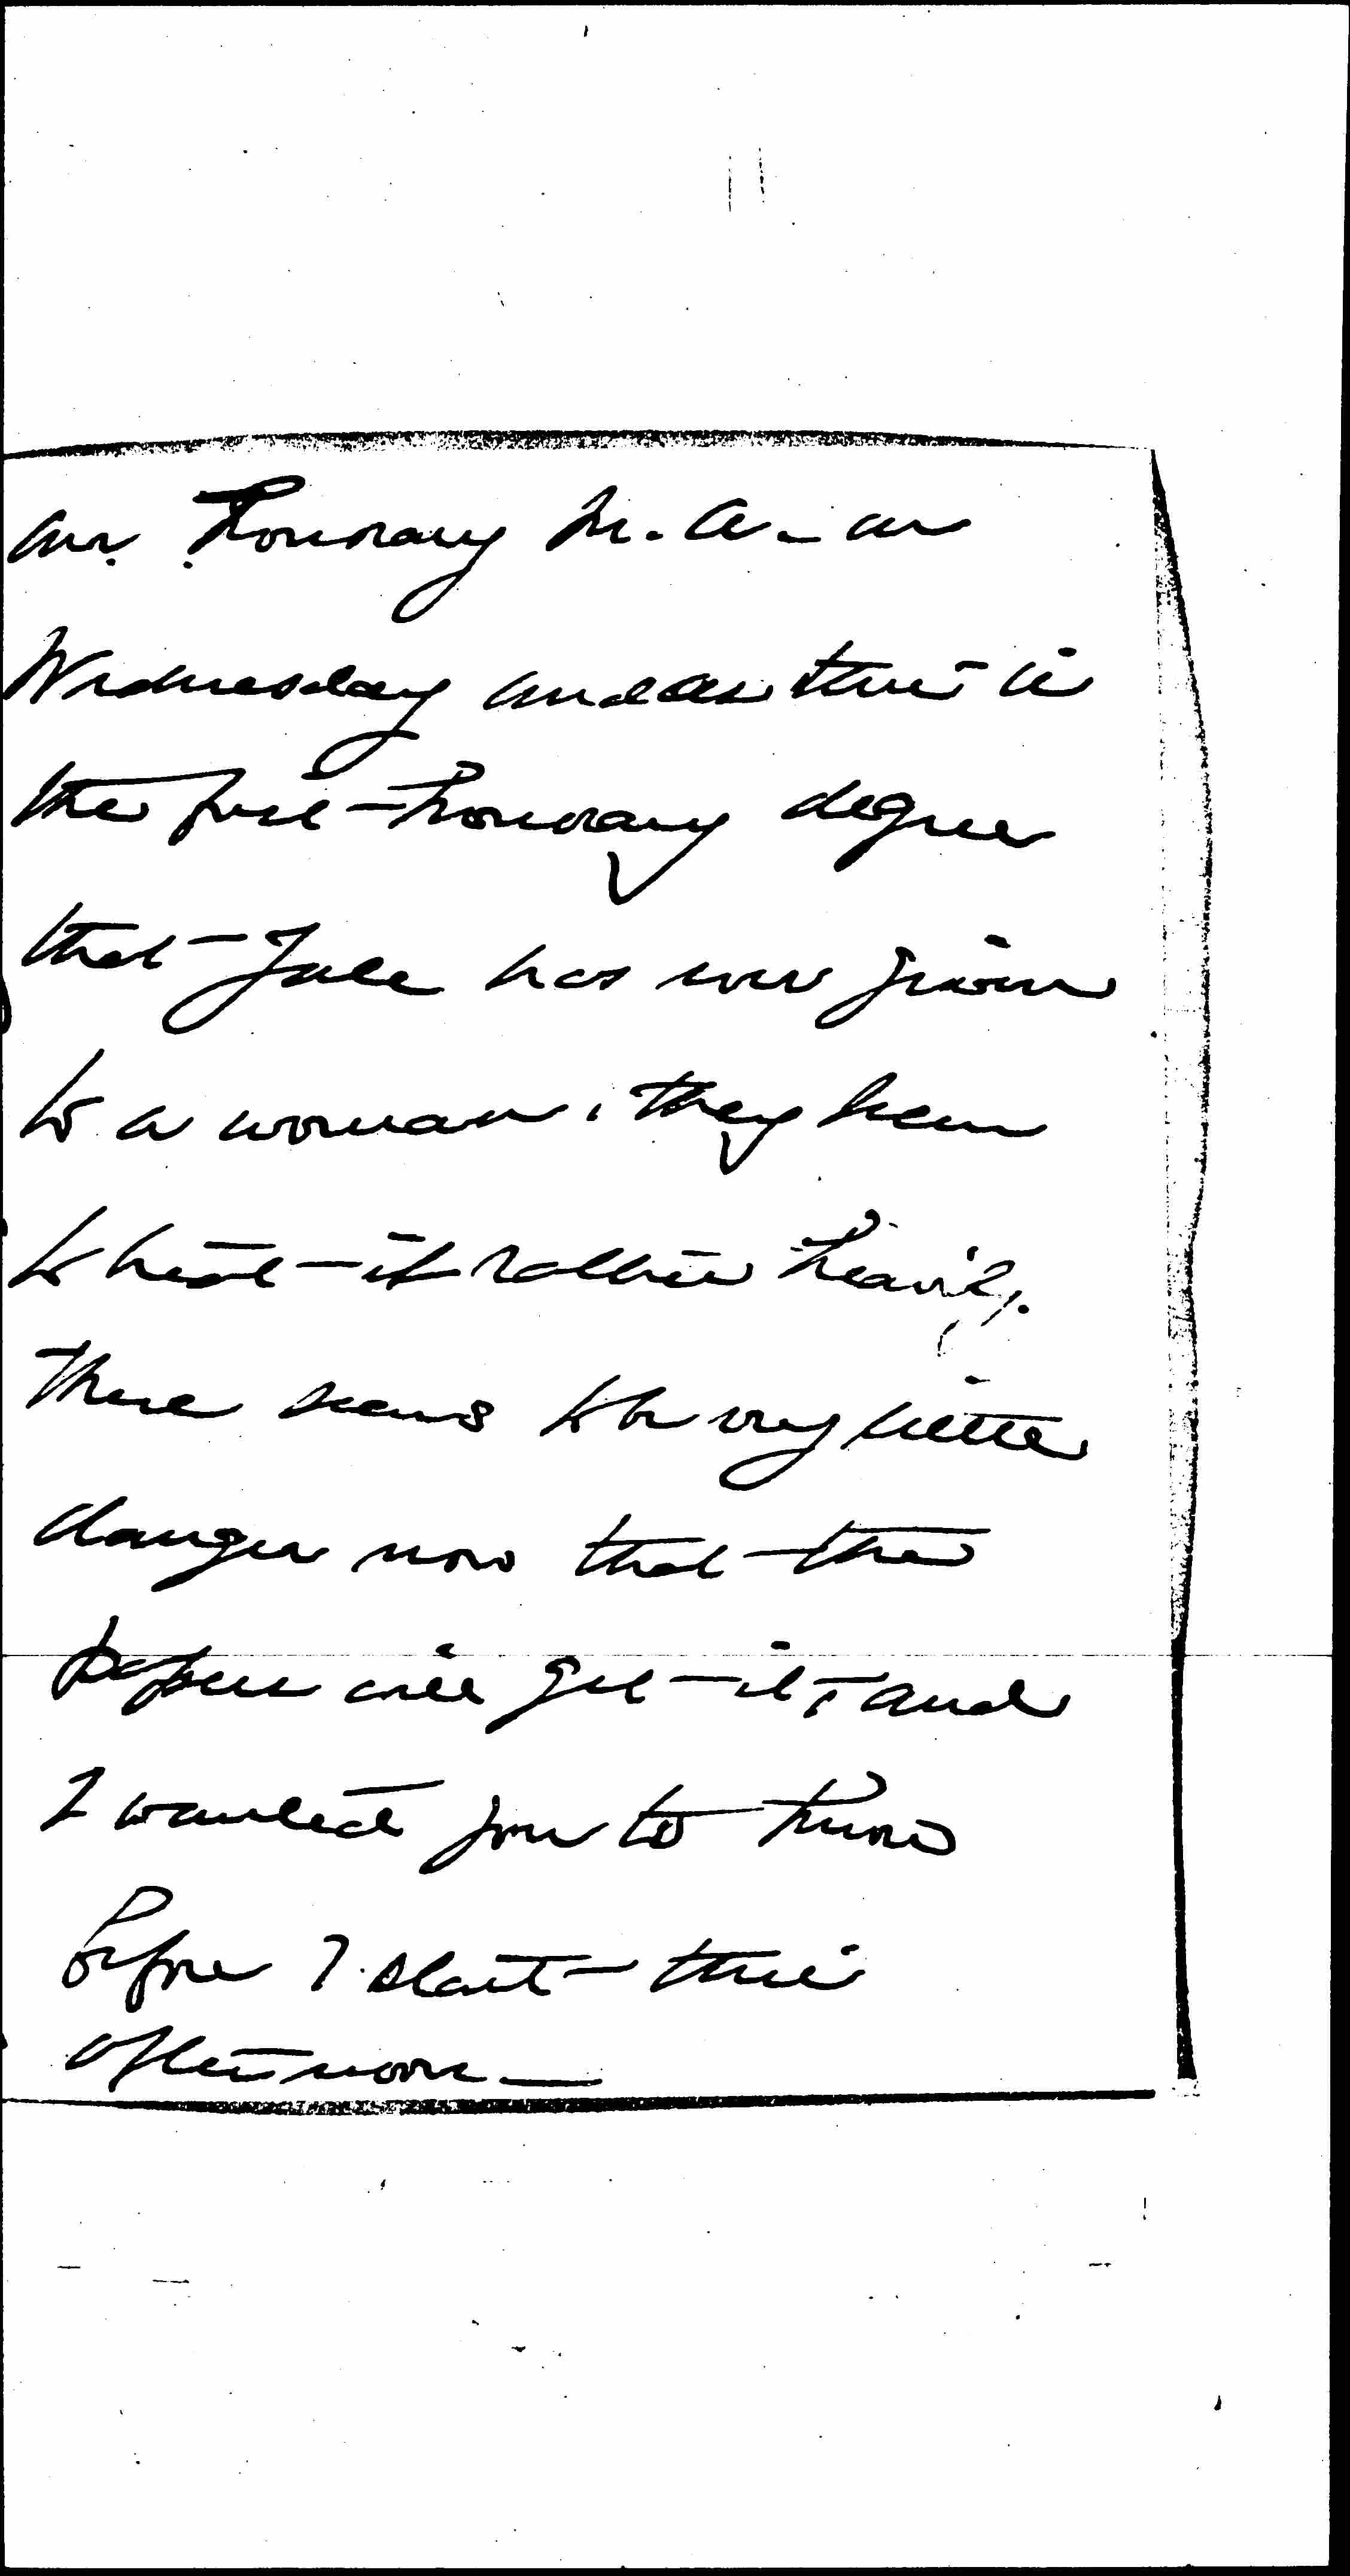 an honorary M.A. on
Wednesday and as this is
the first honorary degree
that Yale has ever given
to a woman, they seem
to treat it rather heavily.
There seems to be very little
danger now that the
papers will get it, and
I wanted you to know
before I start this
afternoon —